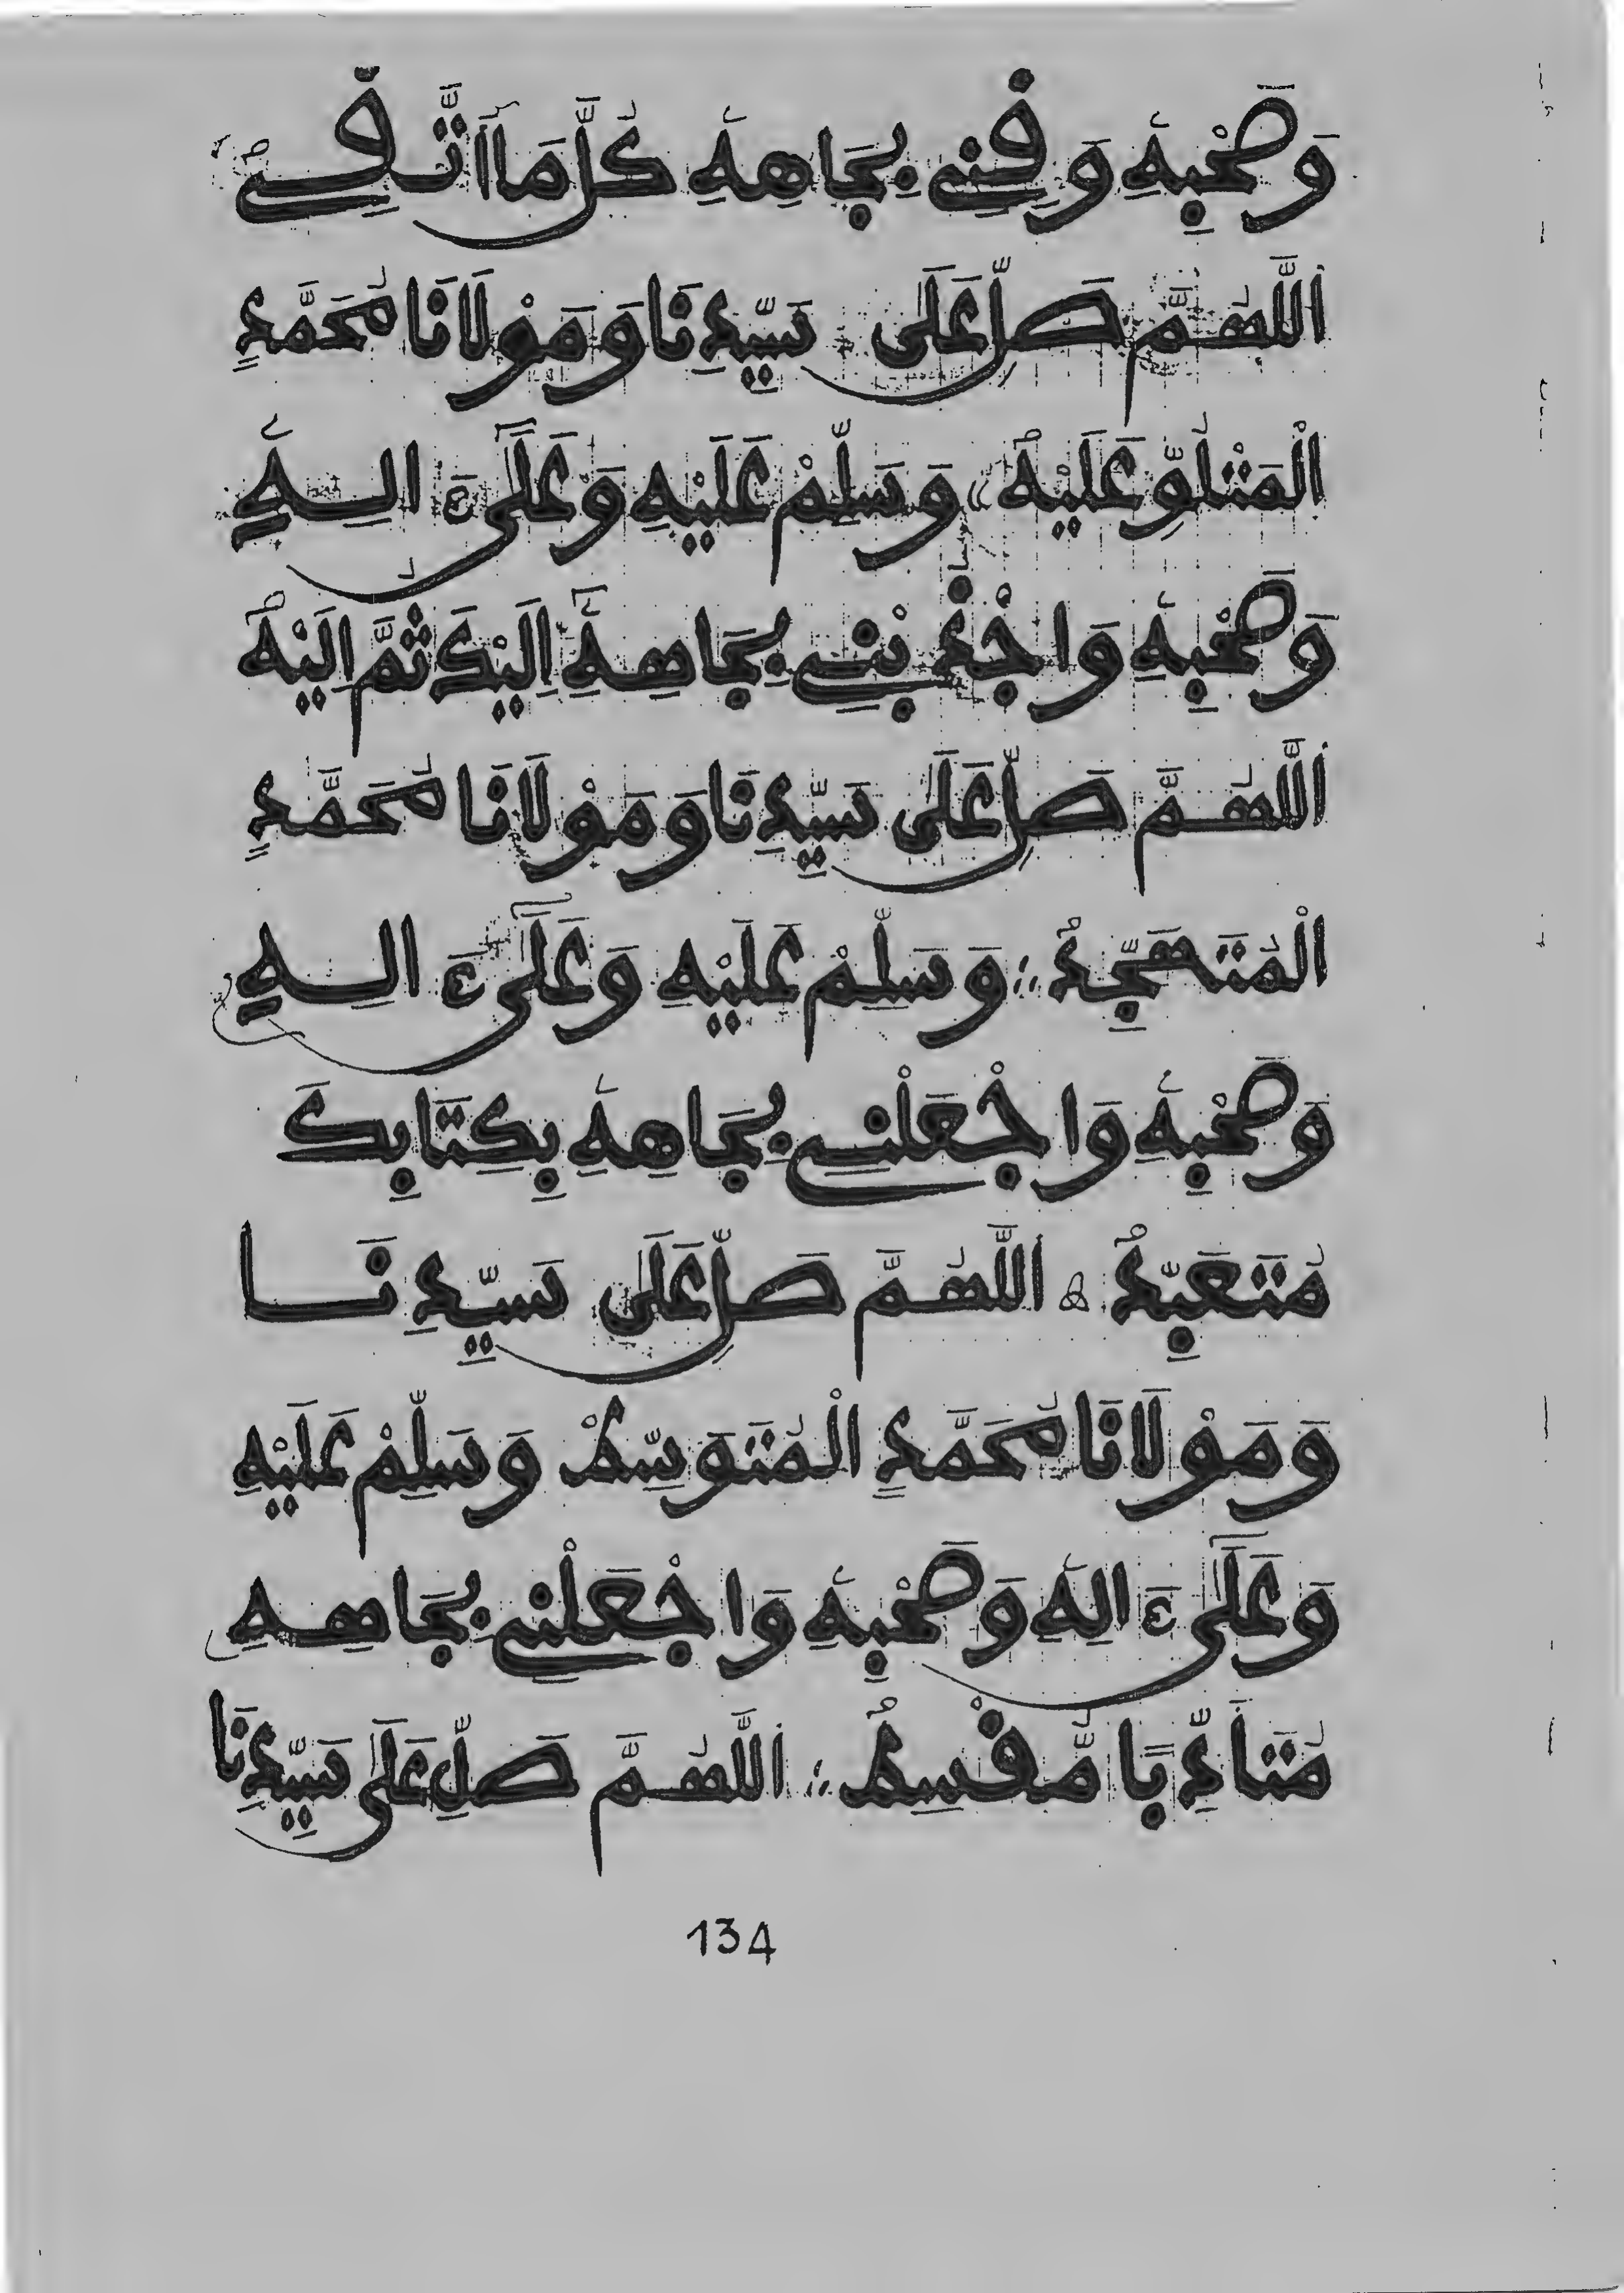 وَصَحْبِهِ وَقِنِي بِجَاهِهِ كُلَّ مَا اَتَّقِي
اَللَّهُمَّ صَلِّ عَلَى سَيِّدِنَا وَمَوْلَانَا مُحَمَّدٍ
الْمَتْلُوِّ عَلَيْهِ وَسَلِّمْ عَلَيْهِ وَعَلَىٰٓ ءَالِهِ
وَصَحْبِهِ وَاجْذِبْنِي بِجَاهِهِ إِلَيْكَ ثُمَّ إِلَيْهِ
اَللَّهُمَّ صَلِّ عَلَى سَيِّدِنَا وَمَوْلَانَا مُحَمَّدٍ
الْمُتَهَجِّدْ وَسَلِّمْ عَلَيْهِ وَعَلَىٰٓ ءَالِهِ
وَصَحْبِهِ وَاجْعَلْنِي بِجَاهِهِ بِكِتَابِكَ
مُتَعَبِّدْ اَللَّهُمَّ صَلِّ عَلَى سَيِّدِنَا
وَمَوْلَانَا مُحَمَّدٍ الْمُتَوَسِّمْ وَسَلِّمْ عَلَيْهِ
وَعَلَىٰٓ ءَالِهِ وَصَحْبِهِ وَاجْعَلْنِي بِجَاهِهِ
مُتَأَدِّبًا مُّقْسِمْ اَللَّهُمَّ صَلِّ عَلَى سَيِّدِنَا
134